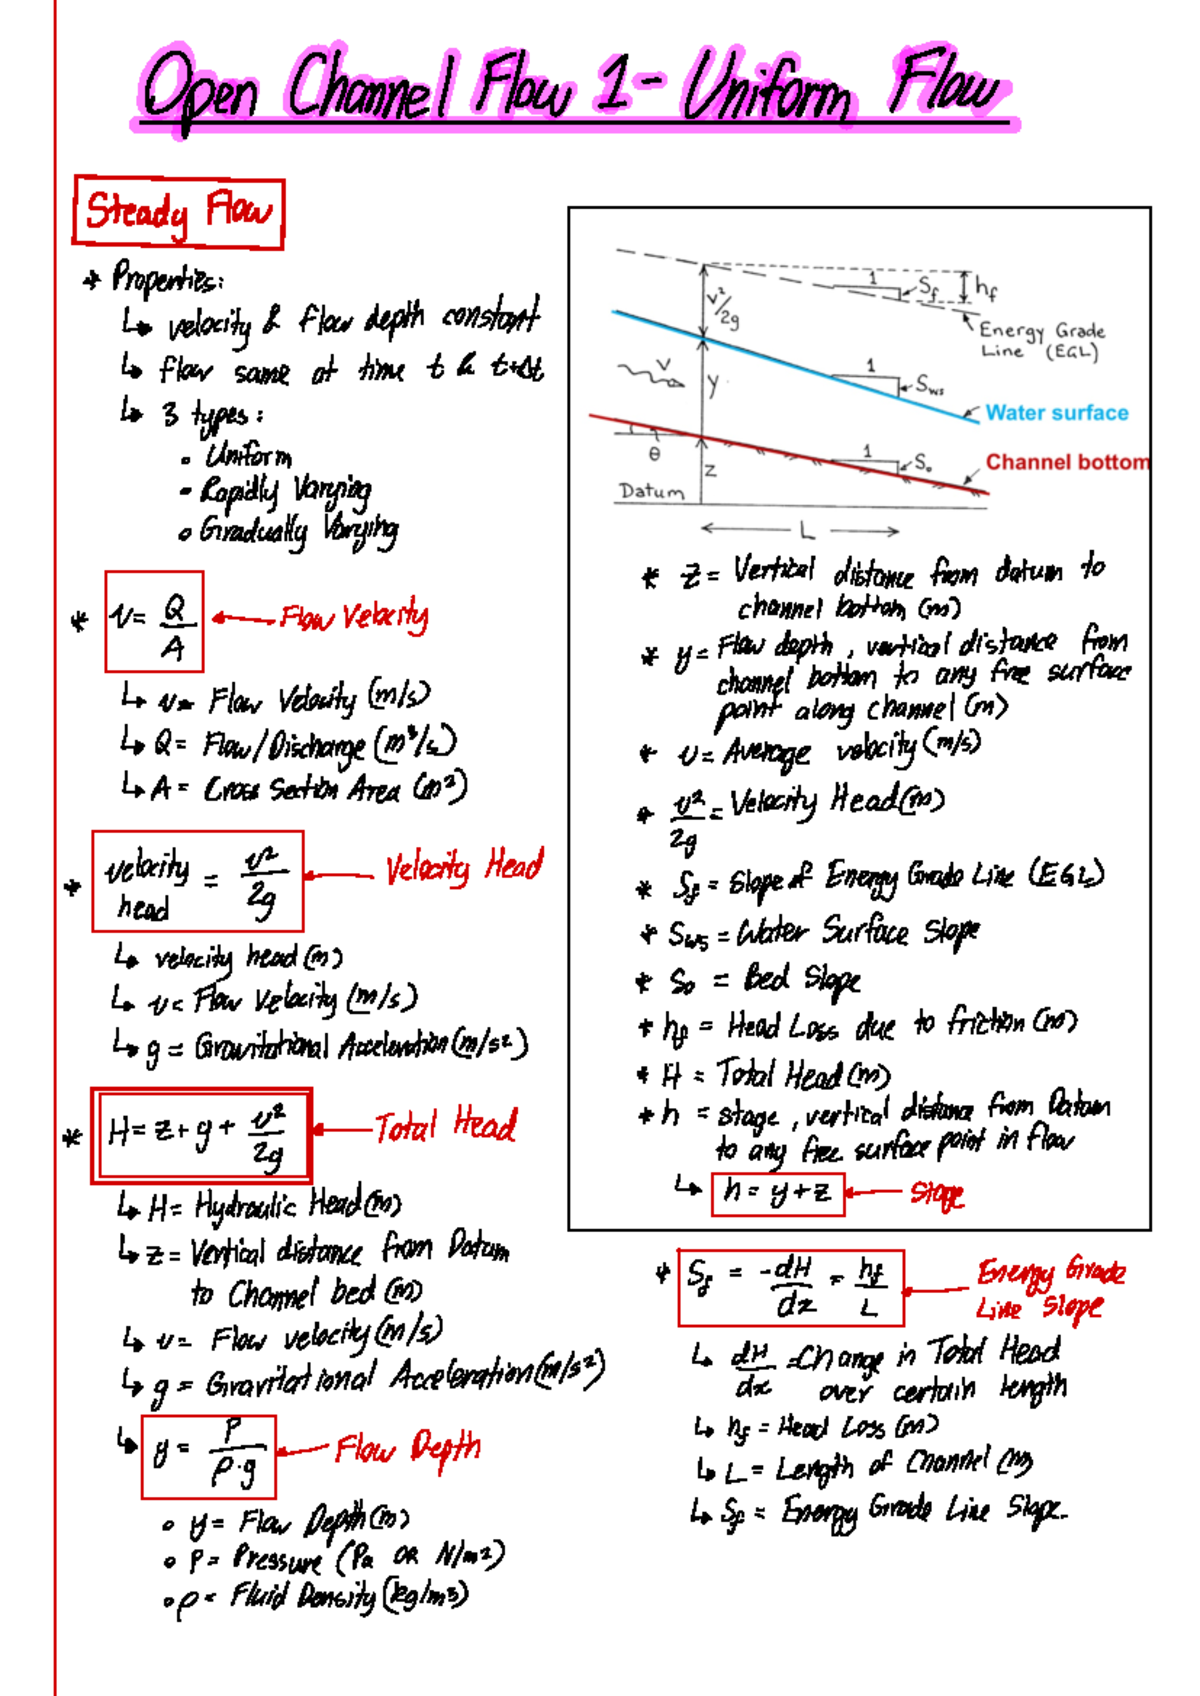 Open Channel Flow 1- Uniform Flow
Steady Flow
* Properties:
↳ velocity & flow depth constant
↳ flow same at time t & t+Δt
↳ 3 types:
• Uniform
• Rapidly Varying
• Gradually Varying
* v = Q/A ← Flow Velocity
↳ v = Flow Velocity (m/s)
↳ Q = Flow/Discharge (m³/s)
↳ A = Cross Section Area (m²)
* velocity head = v²/2g ← Velocity Head
↳ velocity head (m)
↳ v = Flow Velocity (m/s)
↳ g = Gravitational Acceleration (m/s²)
* H = z + y + v²/2g ← Total Head
↳ H = Hydraulic Head (m)
↳ z = Vertical distance from Datum
to Channel bed (m)
↳ v = Flow velocity (m/s)
↳ g = Gravitational Acceleration (m/s²)
↳ y = P/ρ·g ← Flow Depth
• y = Flow Depth (m)
• P = Pressure (Pa OR N/m²)
• ρ = Fluid Density (kg/m³)
v²/2g
1
Sf
hf
Energy Grade
Line (EGL)
V
y
1
Sws
Water surface
θ
z
1
So
Channel bottom
Datum
L
* z = Vertical distance from datum to
channel bottom (m)
* y = Flow depth, vertical distance from
channel bottom to any free surface
point along channel (m)
* v = Average velocity (m/s)
* v²/2g = Velocity Head (m)
* Sf = Slope of Energy Grade Line (EGL)
* Sws = Water Surface Slope
* So = Bed Slope
* hf = Head Loss due to friction (m)
* H = Total Head (m)
* h = stage, vertical distance from Datum
to any free surface point in flow
↳ h = y + z ← Stage
* Sf = -dH/dx = hf/L ← Energy Grade
Line Slope
↳ dH/dx = Change in Total Head
over certain length
↳ hf = Head Loss (m)
↳ L = Length of Channel (m)
↳ Sf = Energy Grade Line Slope.